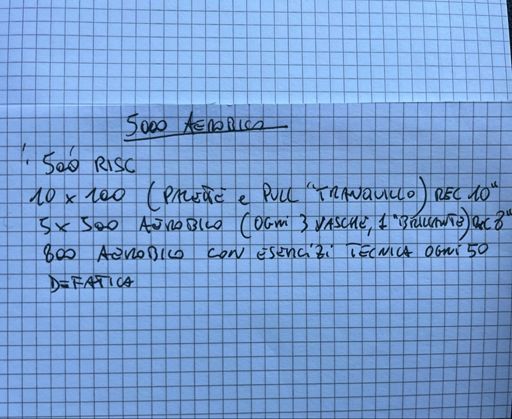 5000 AEROBICO
500 RISC
10 x 100 (PALETTE e PULL "TRANQUILLO) REC 10"
5 x 500 AEROBICO (OGNI 3 VASCHE, 1 "BRILLANTE) REC 8"
800 AEROBICO CON ESERCIZI TECNICA OGNI 50
DEFATICA